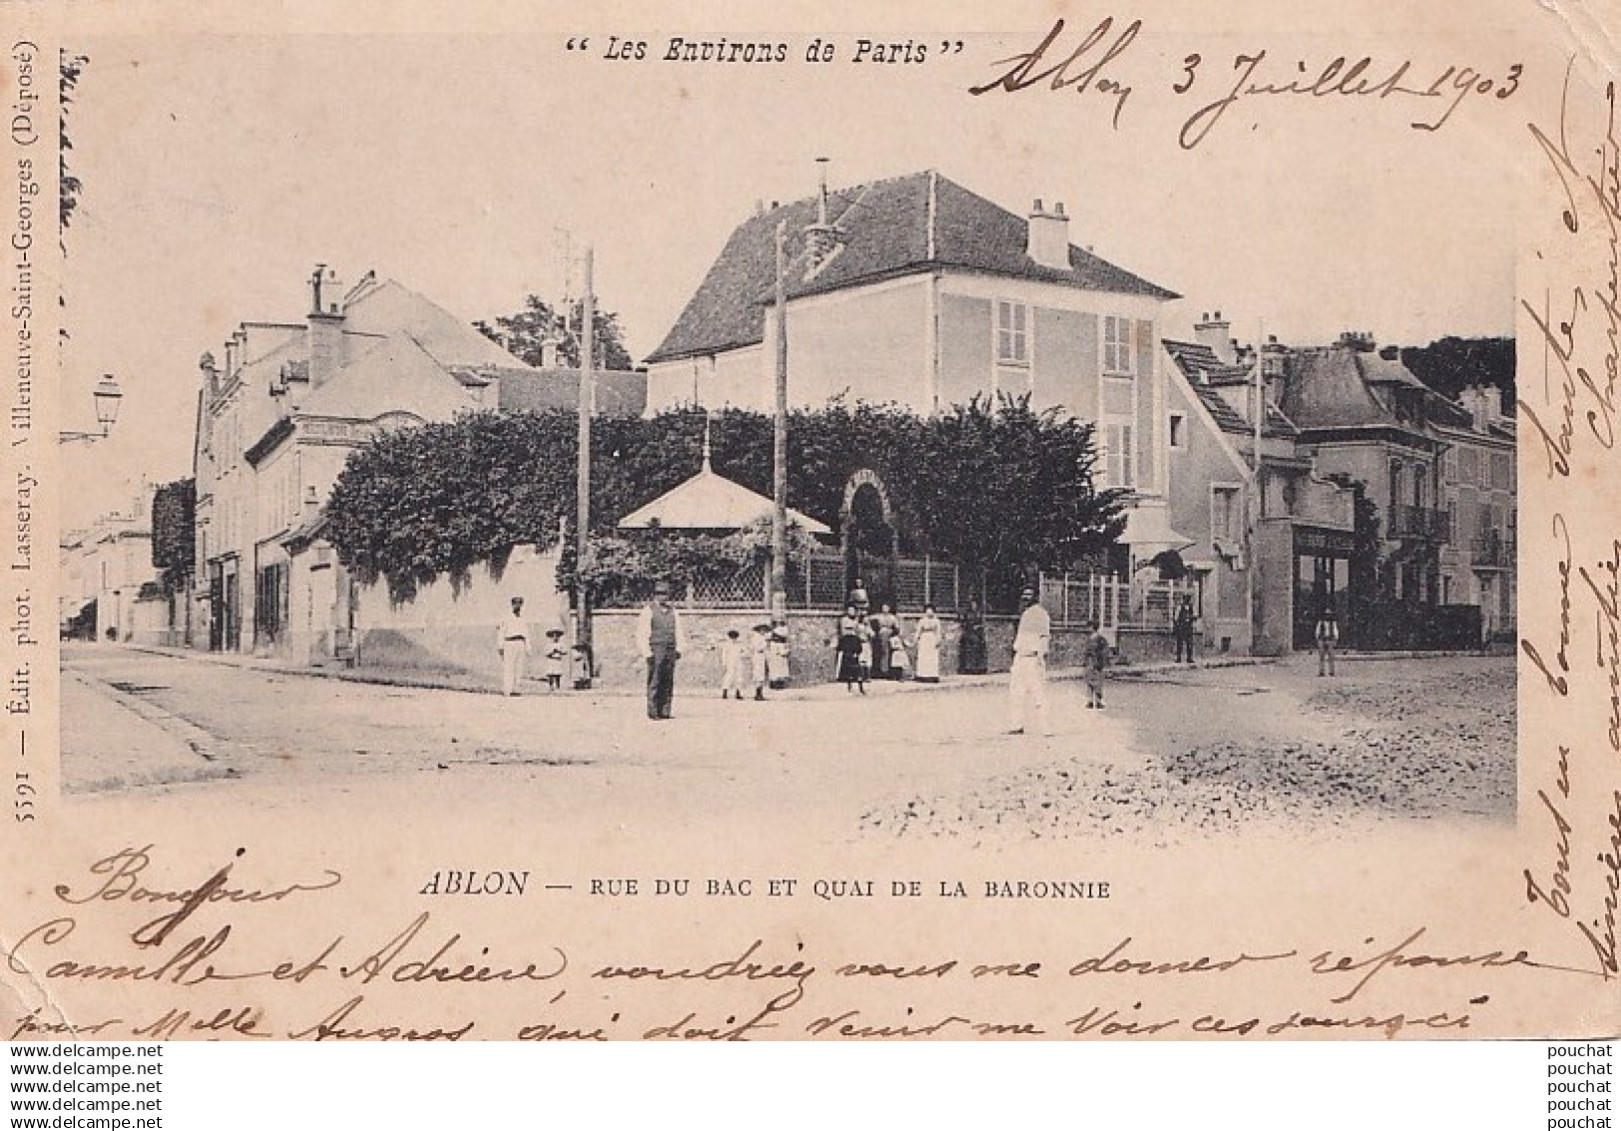 “ Les Environs de Paris ”
Ablon 3 Juillet 1903
5591 — Édit. phot. Lasseray. Villeneuve-Saint-Georges (Déposé)
ABLON — RUE DU BAC ET QUAI DE LA BARONNIE
Bonjour
Camille et Adrien, voudriez vous me donner réponse
pour Melle Augros qui doit venir me voir ces jours-ci
Tous en bonne santé, N
sincères amitiés Charpentier
www.delcampe.net
www.delcampe.net
www.delcampe.net
www.delcampe.net
www.delcampe.net
pouchat
pouchat
pouchat
pouchat
pouchat